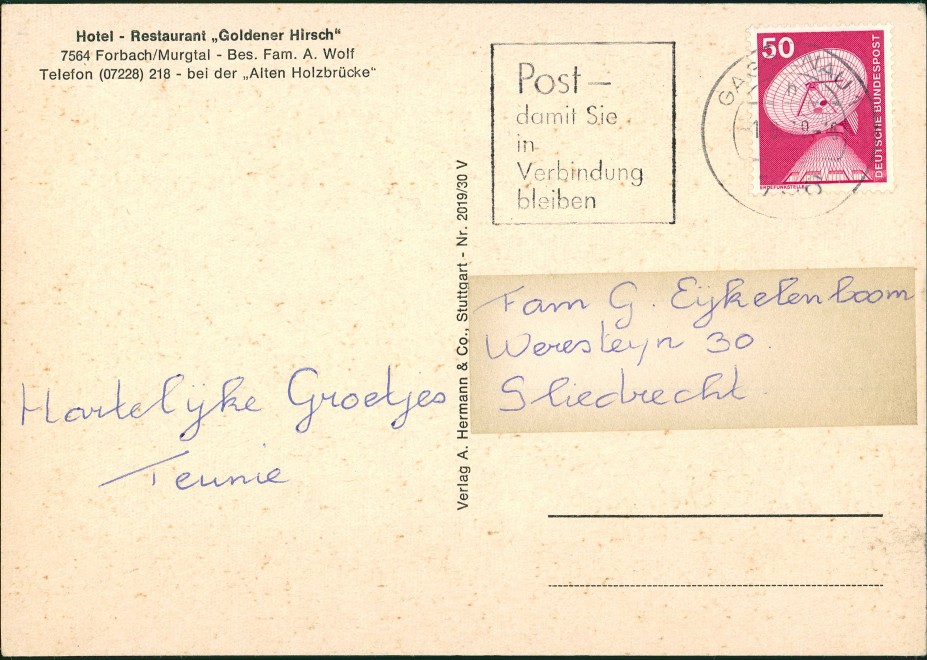 Hotel - Restaurant „Goldener Hirsch“
7564 Forbach/Murgtal - Bes. Fam. A. Wolf
Telefon (07228) 218 - bei der „Alten Holzbrücke“
Post —
damit Sie
in
Verbindung
bleiben
50
DEUTSCHE BUNDESPOST
ERDEFUNKSTELLE
Verlag A. Hermann & Co., Stuttgart - Nr. 2019/30 V
Fam G. Eijkelenboom
Weresteyn 30.
Sliedrecht
Hartelijke Groetjes
Teunie